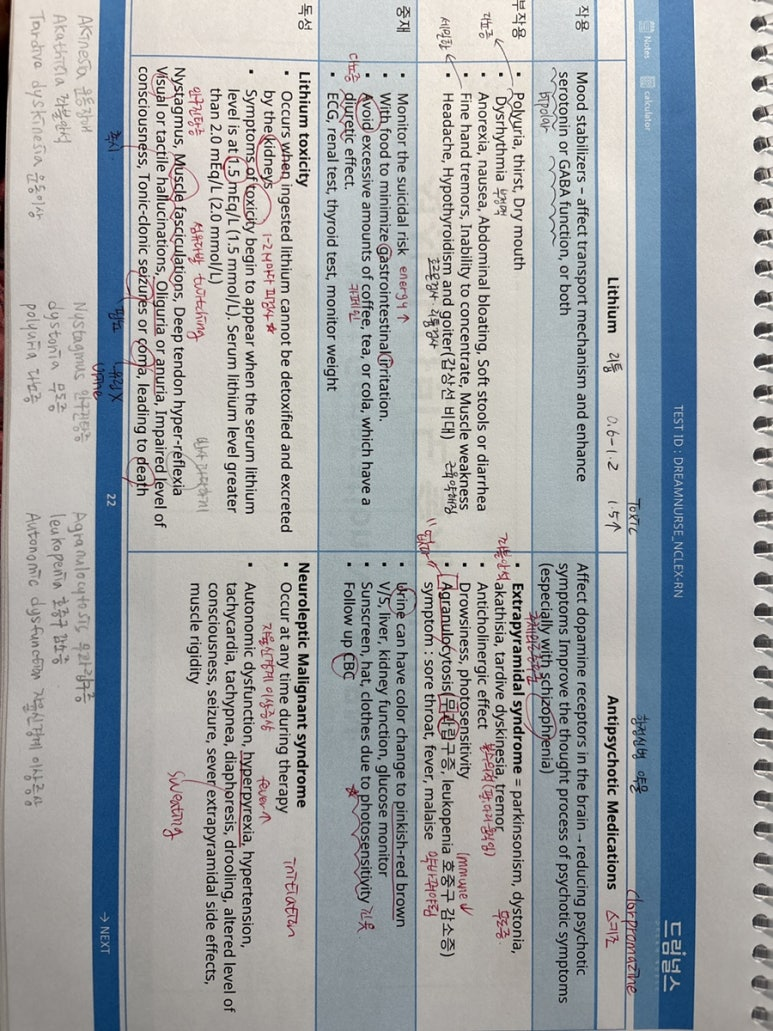 Notes
calculator
TEST ID : DREAMNURSE_NCLEX-RN
드림널스
Lithium 리튬 0.6-1.2 1.5↑ Toxic
Antipsychotic Medications
항정신병 약물
clorpromazine
작용
Mood stabilizers – affect transport mechanism and enhance
serotonin or GABA function, or both
bipolar
Affect dopamine receptors in the brain→reducing psychotic
symptoms Improve the thought process of psychotic symptoms
(especially with schizophrenia)
부작용
다뇨증
세밀한
• Polyuria, thirst, Dry mouth
• Dysrhythmia 부정맥
• Anorexia, nausea, Abdominal bloating, Soft stools or diarrhea
• Fine hand tremors, Inability to concentrate, Muscle weakness
근육약해짐
• Headache, Hypothyroidism and goiter(갑상선 비대)
• Extrapyramidal syndrome = parkinsonism, dystonia,
akathisia, tardive dyskinesia, tremor
• Anticholinergic effect
• Drowsiness, photosensitivity
• Agranulocytosis(무과립구증, leukopenia 호중구 감소증)
immune↓
symptom : sore throat, fever, malaise
중재
• Monitor the suicidal risk energy↑
• With food to minimize gastrointestinal irritation.
• Avoid excessive amounts of coffee, tea, or cola, which have a
카페인
diuretic effect.
다뇨증
• ECG, renal test, thyroid test, monitor weight
• Urine can have color change to pinkish-red brown
• V/S, liver, kidney function, glucose monitor
• Sunscreen, hat, clothes due to photosensitivity
• Follow up CBC
독성
Lithium toxicity
• Occurs when ingested lithium cannot be detoxified and excreted
by the kidneys
• Symptoms of toxicity begin to appear when the serum lithium
level is at 1.5 mEq/L (1.5 mmol/L), Serum lithium level greater
than 2.0 mEq/L (2.0 mmol/L)
안구진탕증
twitching
Nystagmus, Muscle fasciculations, Deep tendon hyper-reflexia
Visual or tactile hallucinations, Oliguria or anuria, Impaired level of
consciousness, Tonic-clonic seizures or coma, leading to death
핍뇨
urine
Neuroleptic Malignant syndrome
• Occur at any time during therapy
initiation
자율신경계 이상증상
fever↑
• Autonomic dysfunction, hyperpyrexia, hypertension,
tachycardia, tachypnea, diaphoresis, drooling, altered level of
consciousness, seizure, sever extrapyramidal side effects,
muscle rigidity
sweating
22
→ NEXT
Akinesia 운동장애
Akathisia 좌불안석
Tardive dyskinesia 운동이상
Nystagmus 안구진탕증
dystonia
polyuria 다뇨증
Agranulocytosis 무과립구증
leukopenia 호중구 감소증
Autonomic dysfunction 자율신경계 이상증상